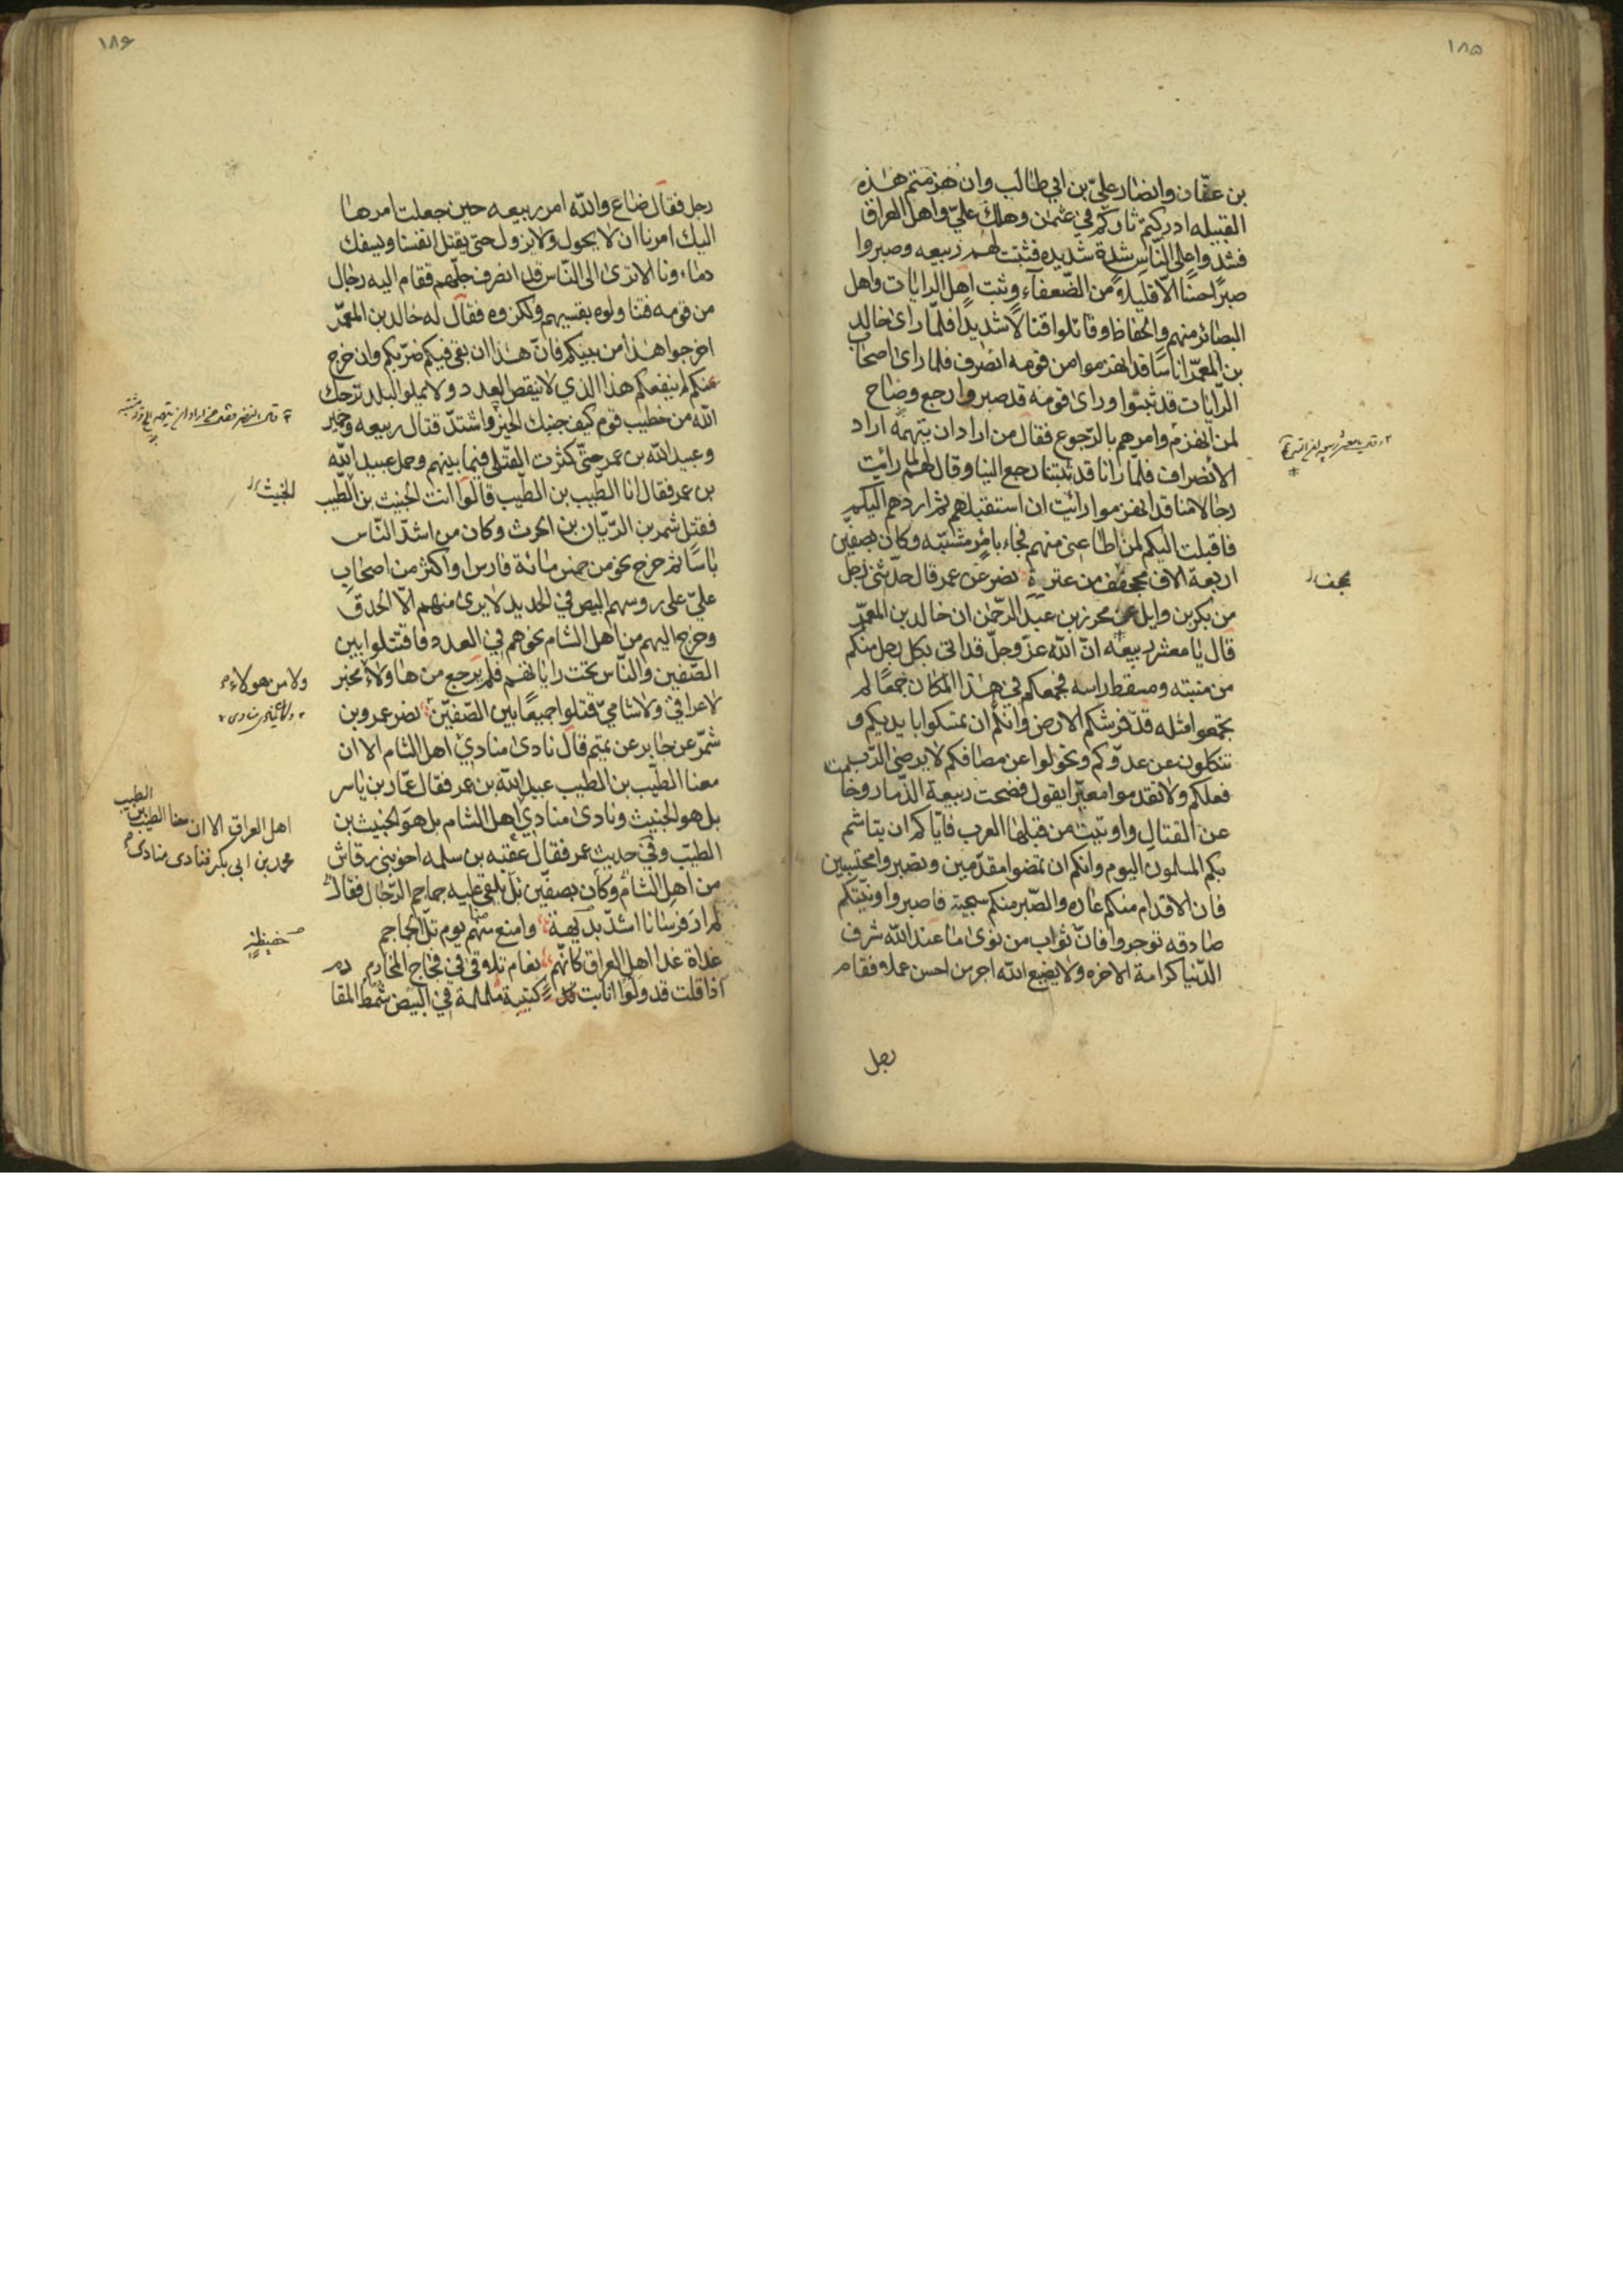 ١٨٥
بن عفّان وانصار عليّ بن ابي طالب وان هزمتم هذه
القبيله ادركتم ثاركم في عثمن وهلك عليّ واهل العراق
فشدوا على النّاس شدة شديده فثبتت لهم ربيعه وصبروا
صبرًا حسنًا الّا قليلاً من الضّعفآء وثبت اهل الرايات واهل
البصائر منهم والحفاظ وقاتلوا قتالًا شديدًا فلمّا راى خالد
بن المعمّر اناسًا قد انهزموا من قومه انصرف فلما راى اصحاب
الرّايات قد ثبتوا وراى قومه قد صبروا رجع وصاح
لمن انهزم وامرهم بالرّجوع فقال من اراد ان يتهمه اراد
الانصراف فلمّا رانا قد ثبتنا رجع الينا وقال لهم لما رايت
رجالا منا قد انهزموا رايت ان استقبلهم ثم اردهم اليكم
فاقبلت اليكم لمن اطاعني منهم فجاء بامر مشتبه وكان بصفّين
اربعة الاف مجفف من عنزة نصر عن عمر قال حدّثني رجل
مجفف
من بكر بن وايل عن محرز بن عبد الرّحمن ان خالد بن المعمّر
قال يا معشر ربيعه انّ اللّه عزّ وجلّ قد اتى بكل رجل منكم
من منبته ومسقط راسه فجمعكم في هذا المكان جمعًا لم
تجتمعوا مثله قطّ فرشكم الارض وانكم ان تمسكوا بايديكم و
تنكلون عن عدوّكم وتحولوا عن مصافكم لا يرضى الرّب
فعلكم ولا تقدموا معيّرا يقول فضحت ربيعة الذّمار وخامت
عن القتال واوتيت من قبلها العرب فايّاكم ان يتاشم
بكم المسلمون اليوم وانكم ان تمضوا مقدّمين وتصبروا محتسبين
فان الاقدام منكم عاده والصّبر منكم سجية فاصبروا ونيّتكم
صادقه توجروا فانّ ثواب من نوى ما عند اللّه شرف
الدّنيا كرامة الاخره ولا يضيع اللّه اجر من احسن عملا وفقام
رجل
١٨۶
رجل فقال ضاع واللّه امر ربيعه حين جعلت امرها
اليك امرنا ان لا يحول ولا يزول حتى يقتل انفسنا ويسفك
دماءونا الا ترى الى النّاس قد انصرف جلّهم فقام اليه رجال
من قومه فتناولوه بقسيهم ولكزوه فقال له خالد بن المعمّر
اخرجوا هذا من بينكم فانّ هذا ان بقى فيكم ضرّبكم وان خرج
منكم لم ينفعكم هذا الذي لا ينقص العدد ولا يملوا البلد ترحك
اللّه من خطيب قوم كيف جنبك الخير واشتدّ قتال ربيعه وحمير
وعبيد اللّه بن عمر حتّى كثرت القتلى فيما بينهم وحمل عبيد اللّه
بن عمر فقال انا الطّيب بن الطّيب قالوا انت الخبيث بن الطّيب
الخبيث
فقتل شمر بن الرّيّان بن الحرث وكان من اشدّ النّاس
باسًا ثم خرج نحو من خمس مائة فارس او اكثر من اصحاب
عليّ على روسهم البيض في الحديد لا يرى منهم الّا الحدق
وخرج اليهم من اهل الشام نحوهم في العدد فاقتتلوا بين
الصّفين والنّاس تحت راياتهم فلم يرجع من هاولاء مخبر
ولا من هولاء
لا عراقيّ ولا شاميّ قتلوا جميعًا بين الصّفيّن نصر عمرو بن
شمّر عن جابر عن تميم قال نادى منادي اهل الشام الا ان
معنا الطّيب بن الطيب عبيد اللّه بن عمر فقال عمّار بن ياسر
بل هو الخبيث ونادى منادي اهل الشام بل هو الخبيث بن
اهل العراق الا ان معنا الطيب بن الطيب
محمد بن ابى بكر فنادى منادى
الطيّب وفي حديث عمر فقال عقبه بن سلمه اخو بني رقاش
من اهل الشام وكان بصفّين تل يلقى عليه جماجم الرّجال فقال
لم ار فرسانا اشدّ بديهة وامنع منهم يوم تلّ الجماجم
حفيظة
غداة غدا اهل العراق كانّهم نعام تلاوقى في فجاج المخارم
اذا قلت قد ولّوا انابت كتيبة ململمة في البيض شمط المقادم